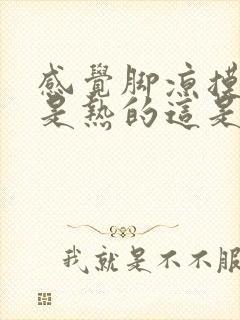 感覺脚凉摸
是熱的這是
我就是不不服